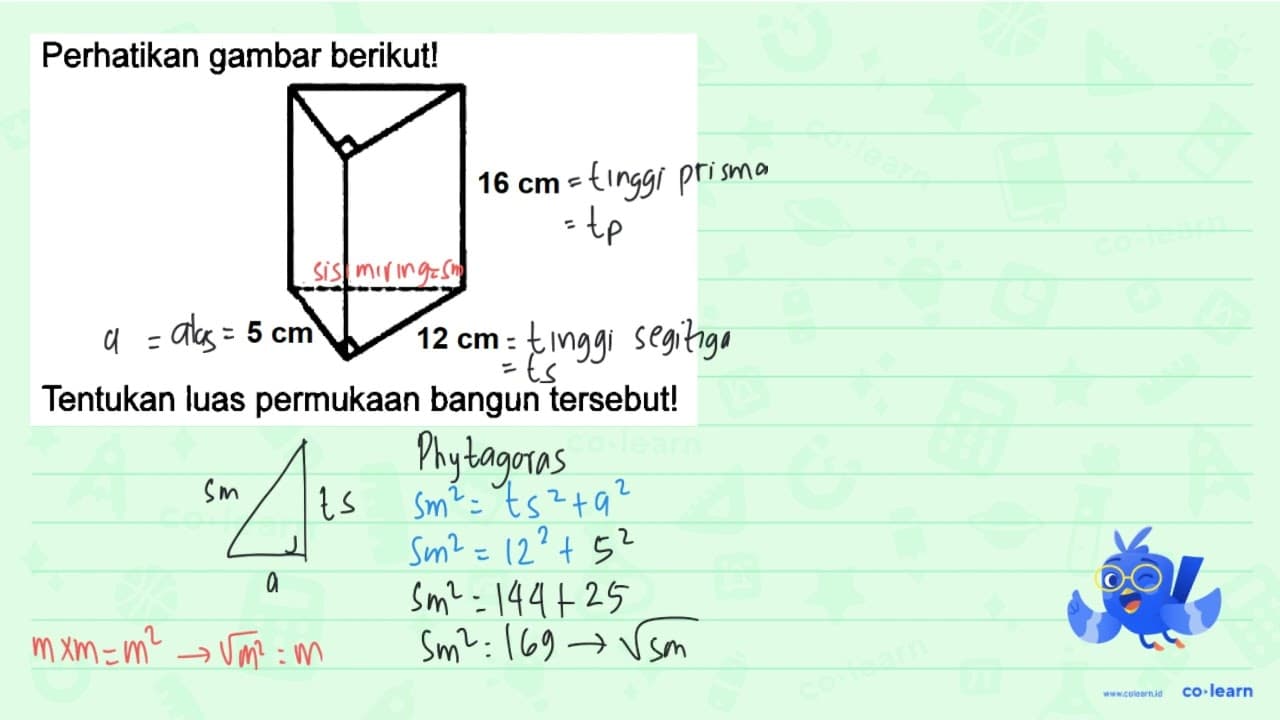 Perhatikan gambar berikut!
16 cm = tinggi prisma
= tp
sisi miring = sm
a = alas = 5 cm
12 cm = tinggi segitiga
= ts
Tentukan luas permukaan bangun tersebut!
sm
ts
a
Phytagoras
sm² = ts² + a²
sm² = 12² + 5²
sm² = 144 + 25
sm² = 169 → √sm
m x m = m² → √m² = m
www.colearn.id
co·learn